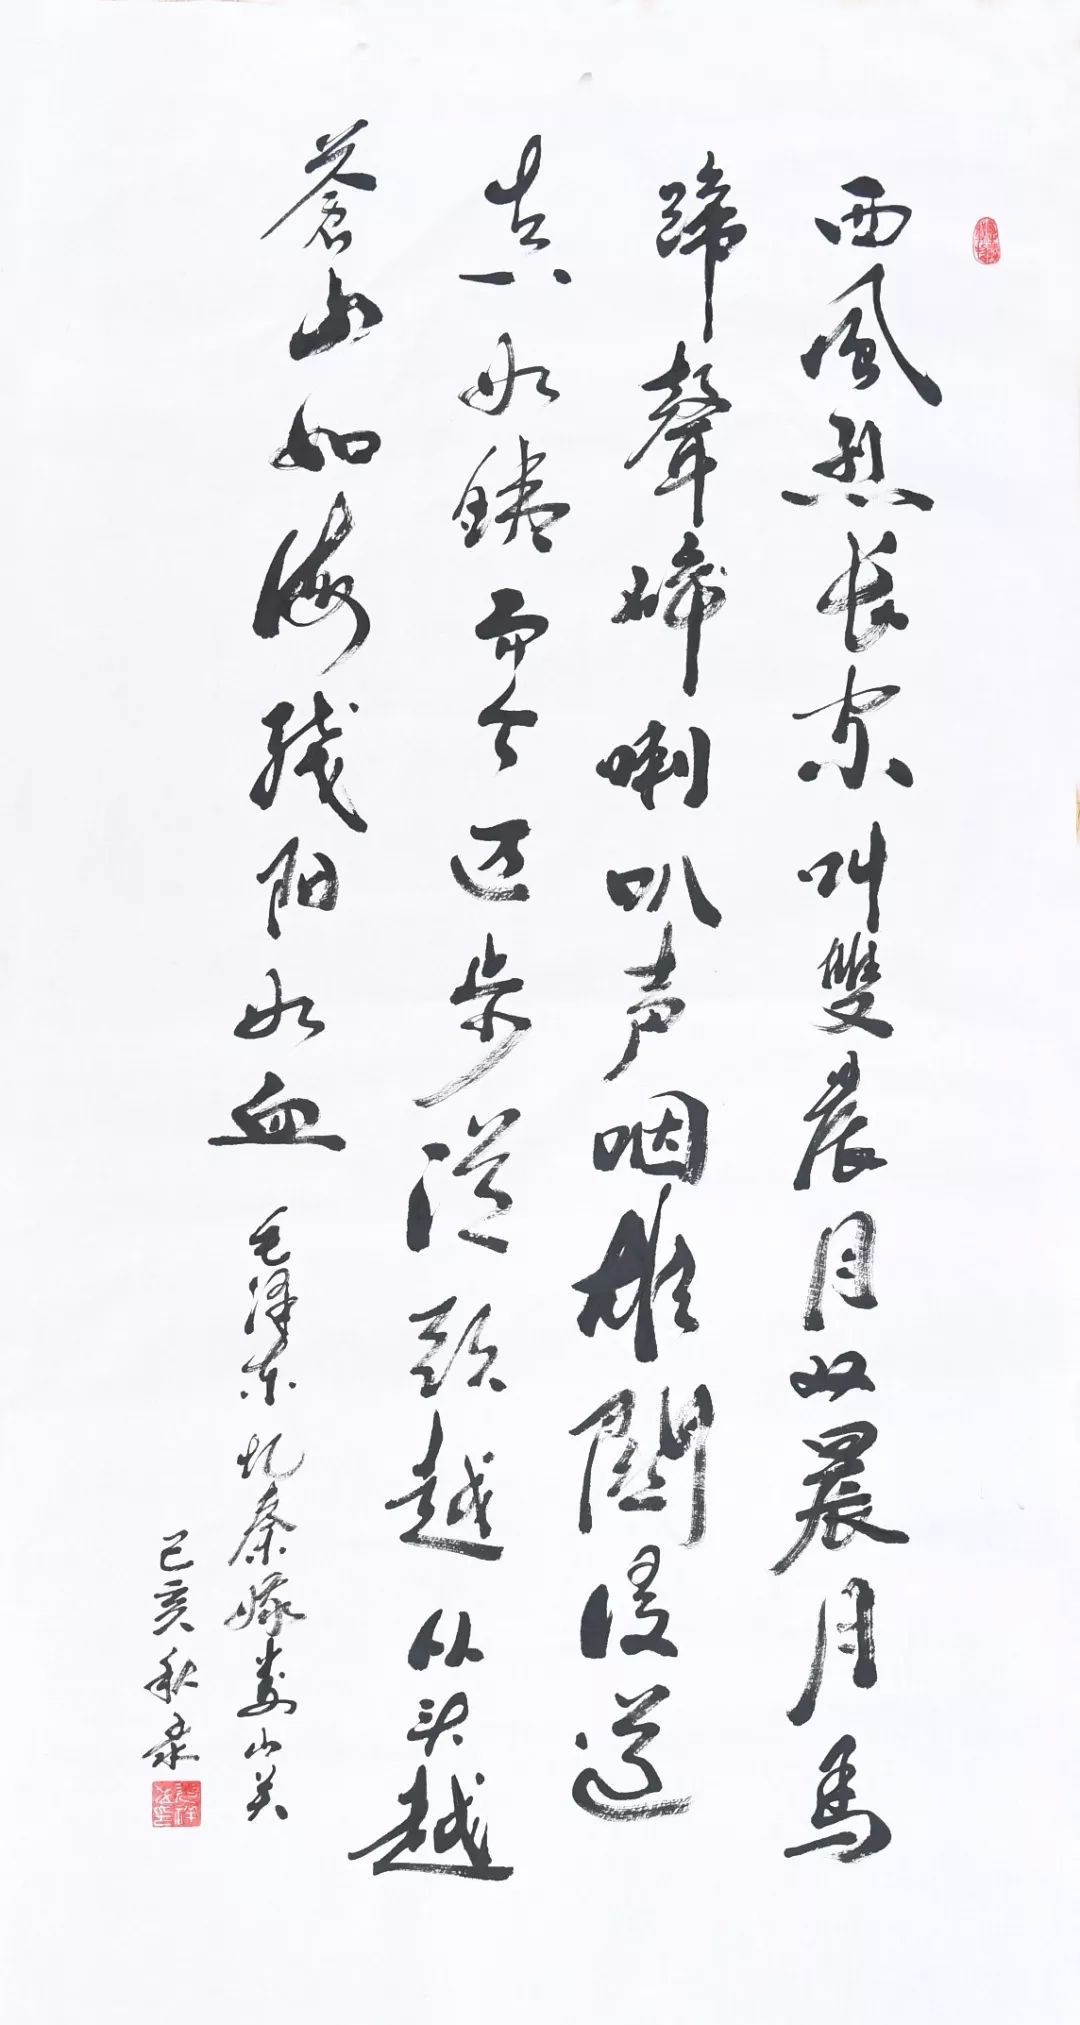 西風烈长空叫雙晨月双晨月馬
蹄聲碎喇叭声咽雄關漫道
真如鐵而今迈步從頭越从头越
蒼山如海残阳如血 毛泽东忆秦娥娄山关
己亥秋录